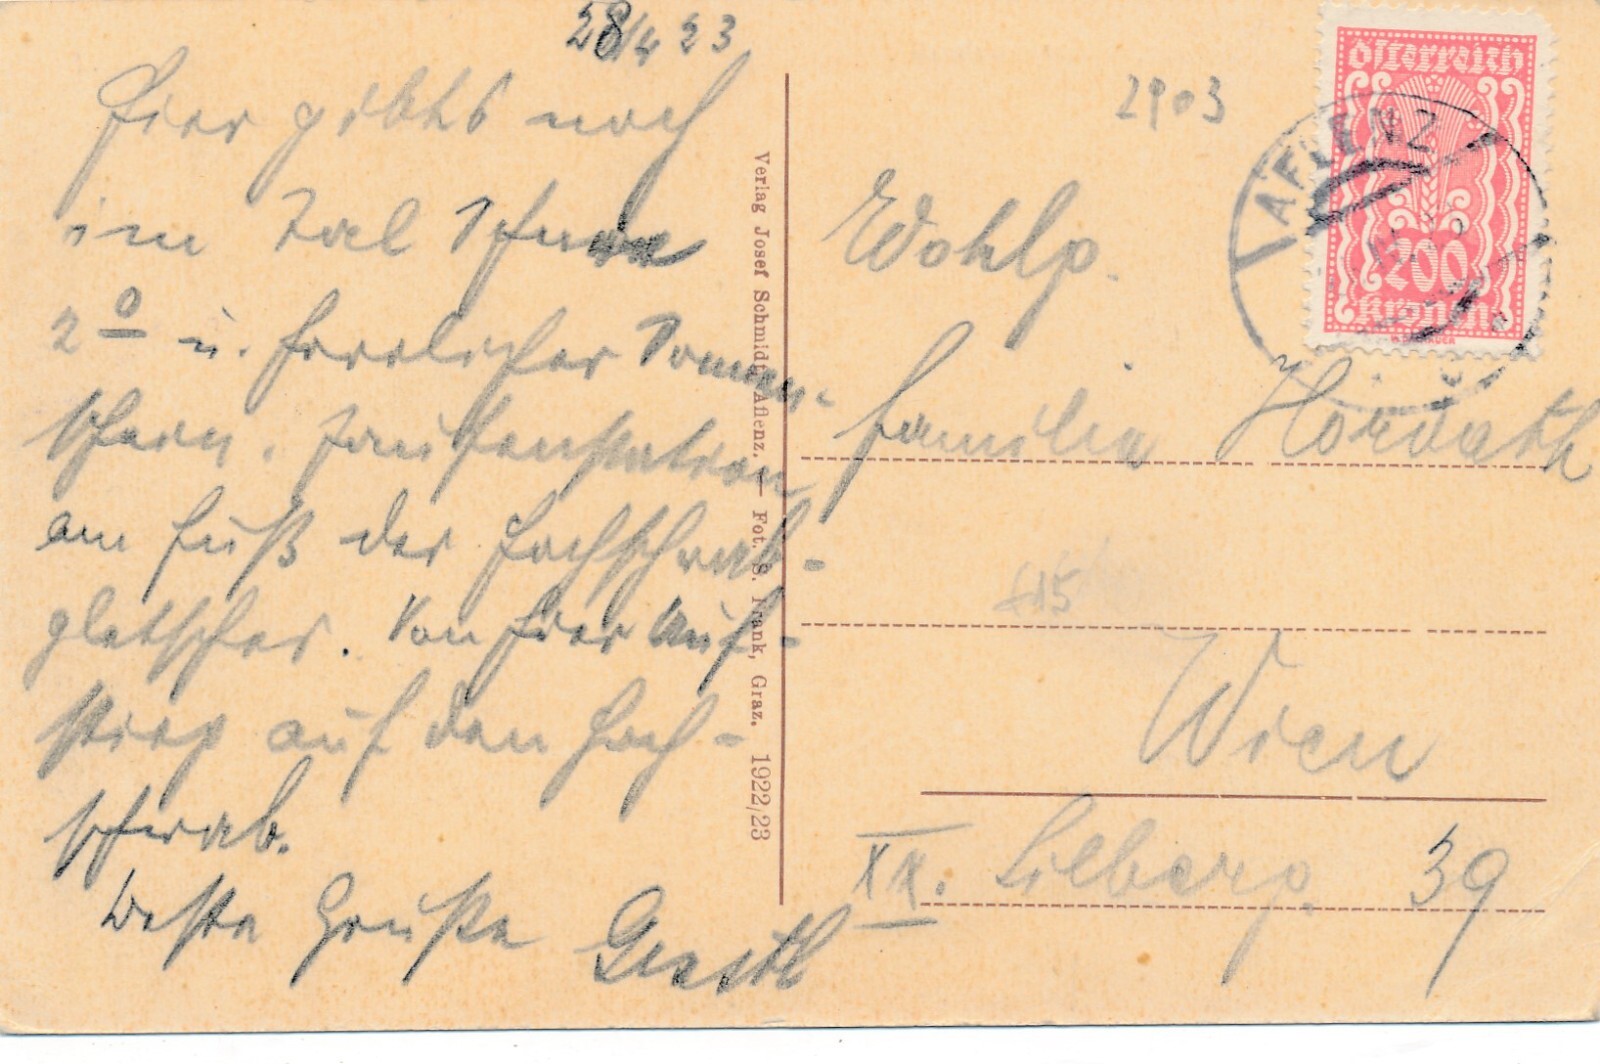 28/4 23
Hier gibts noch
im Tal Schnee
2º u. herrlicher Sonnen-
schein. Jausenstation
am Fuß der Hochschwab-
gletscher. Von hier Auf-
stieg auf den Hoch-
schwab.
Beste Grüße
Verlag Josef Schmidt, Aflenz. — Fot. S. Frank, Graz. 1922/23
2903
Österreich
200
Kronen
AFLENZ
Wohlg.
Familie Horvath
£15
Wien
XX. 39